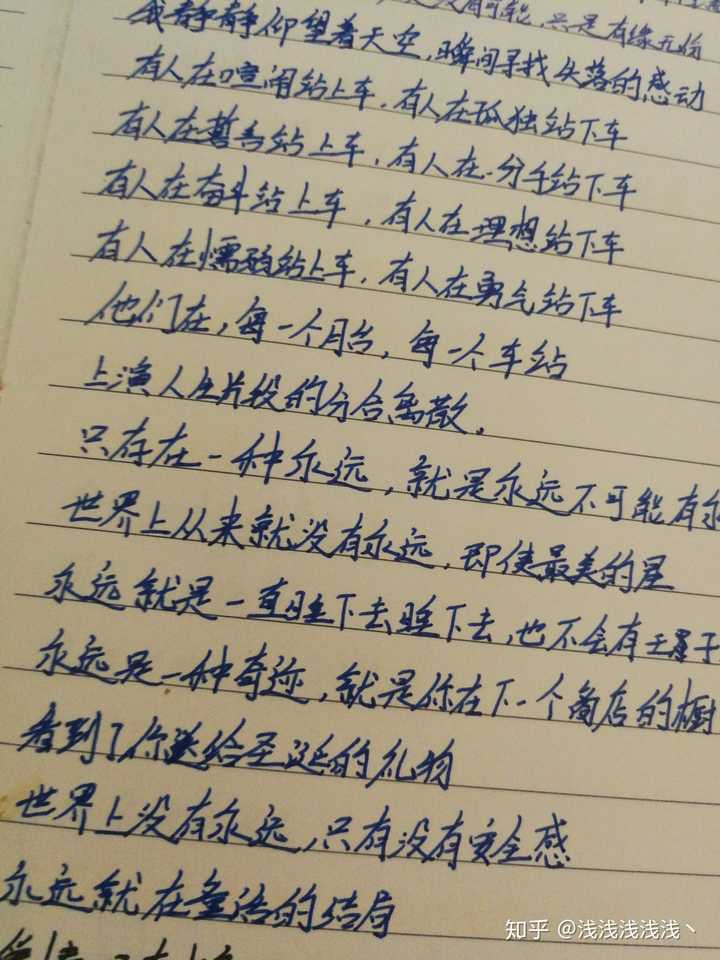 只是有缘无份
我静静仰望着天空,瞬间寻找失落的感动
有人在喧闹站上车,有人在孤独站下车
有人在誓言站上车,有人在分手站下车
有人在奋斗站上车,有人在理想站下车
有人在懦弱站上车,有人在勇气站下车
他们在,每一个月台,每一个车站
上演人生片段的分合离散。
只存在一种永远,就是永远不可能有永
世界上从来就没有永远,即使最美的星
永远就是一直睡下去睡下去,也不会有王子
永远是一种奇迹,就是你在下一个商店的橱
看到了你送给圣诞的礼物
世界上没有永远,只有没有安全感
永远就在童话的结局
知乎 @浅浅浅浅浅丶